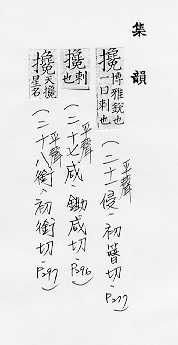 集韻
攙 博雅銳也一曰刺也 平聲(二十一侵·初簪切·P277)
攙 刺也 平聲(二十七咸·鋤咸切·P296)
攙 天攙星名 平聲(二十八銜·初銜切·P297)